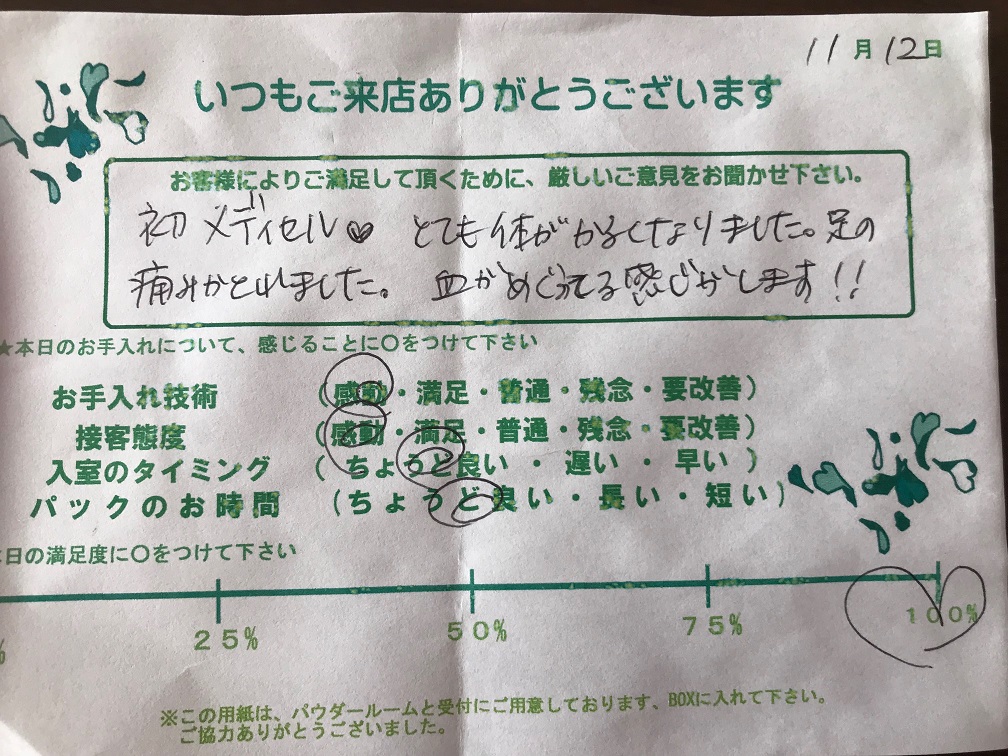 11月12日
いつもご来店ありがとうございます
お客様によりご満足して頂くために、厳しいご意見をお聞かせ下さい。
初メディセル♥ とても体がかるくなりました。足の
痛みがとれました。 血がめぐってる感じがします!!
★本日のお手入れについて、感じることに〇をつけて下さい
お手入れ技術 (感動・満足・普通・残念・要改善)
接客態度 (感動・満足・普通・残念・要改善)
入室のタイミング (ちょうど良い・遅い・早い)
パックのお時間 (ちょうど良い・長い・短い)
本日の満足度に〇をつけて下さい
% 25% 50% 75% 100%
※この用紙は、パウダールームと受付にご用意しております、BOXに入れて下さい。
ご協力ありがとうございました。